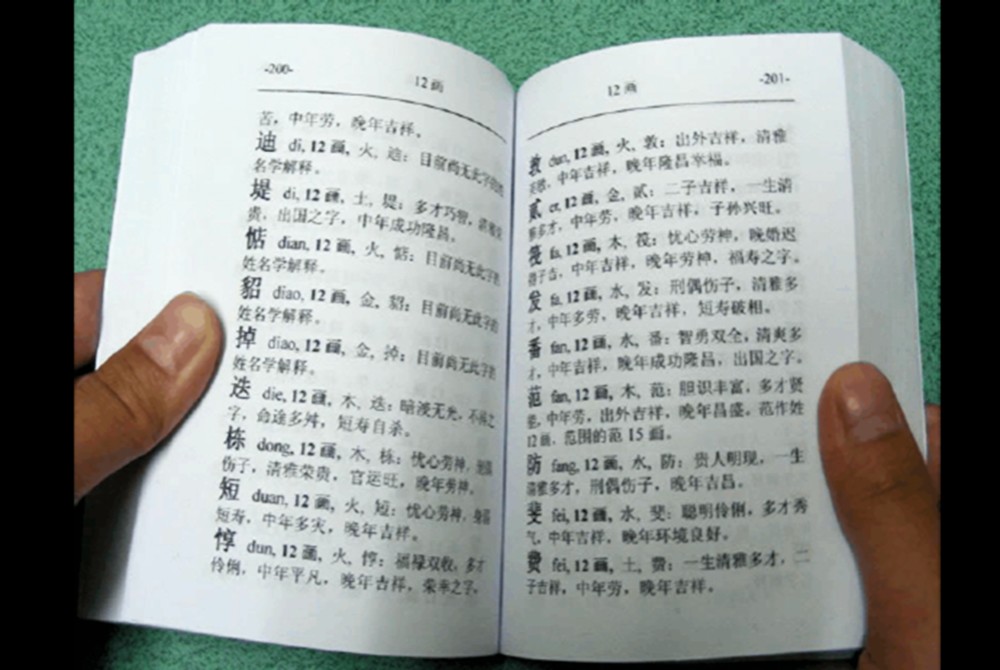 -200-
12画
苦，中年劳，晚年吉祥。
迪 di, 12画, 火, 迪：目前尚无此字的姓
名学解释。
堤 di, 12画, 土, 堤：多才巧智，清雅荣
贵，出国之字，中年成功隆昌。
惦 dian, 12画, 火, 惦：目前尚无此字的
姓名学解释。
貂 diao, 12画, 金, 貂：目前尚无此字的
姓名学解释。
掉 diao, 12画, 金, 掉：目前尚无此字的
姓名学解释。
迭 die, 12画, 木, 迭：暗淡无光，不祥之
字，命途多舛，短寿自杀。
栋 dong, 12画, 木, 栋：忧心劳神，
伤子，清雅荣贵，官运旺，晚年劳神。
短 duan, 12画, 火, 短：忧心劳神，身弱
短寿，中年多灾，晚年吉祥。
惇 dun, 12画, 火, 惇：福禄双收，多才
伶俐，中年平凡，晚年吉祥，荣幸之字。
12画
-201-
敦 dun, 12画, 火, 敦：出外吉祥，清雅
英敏，中年吉祥，晚年隆昌幸福。
贰 er, 12画, 金, 贰：二子吉祥，一生清
雅多才，中年劳，晚年吉祥，子孙兴旺。
筏 fa, 12画, 木, 筏：忧心劳神，晚婚迟
得子吉，中年吉祥，晚年劳神，福寿之字。
发 fa, 12画, 水, 发：刑偶伤子，清雅多
才，中年多劳，晚年吉祥，短寿破相。
番 fan, 12画, 水, 番：智勇双全，清爽多
才，中年吉祥，晚年成功隆昌，出国之字。
范 fan, 12画, 木, 范：胆识丰富，多才贤
能，中年劳，出外吉祥，晚年昌盛，范作姓
12画，范围的范15画。
防 fang, 12画, 水, 防：贵人明现，一生
清雅多才，刑偶伤子，晚年吉昌。
斐 fei, 12画, 水, 斐：聪明伶俐，多才秀
气，中年吉祥，晚年环境良好。
费 fei, 12画, 土, 费：一生清雅多才，二
子吉祥，中年劳，晚年吉祥。